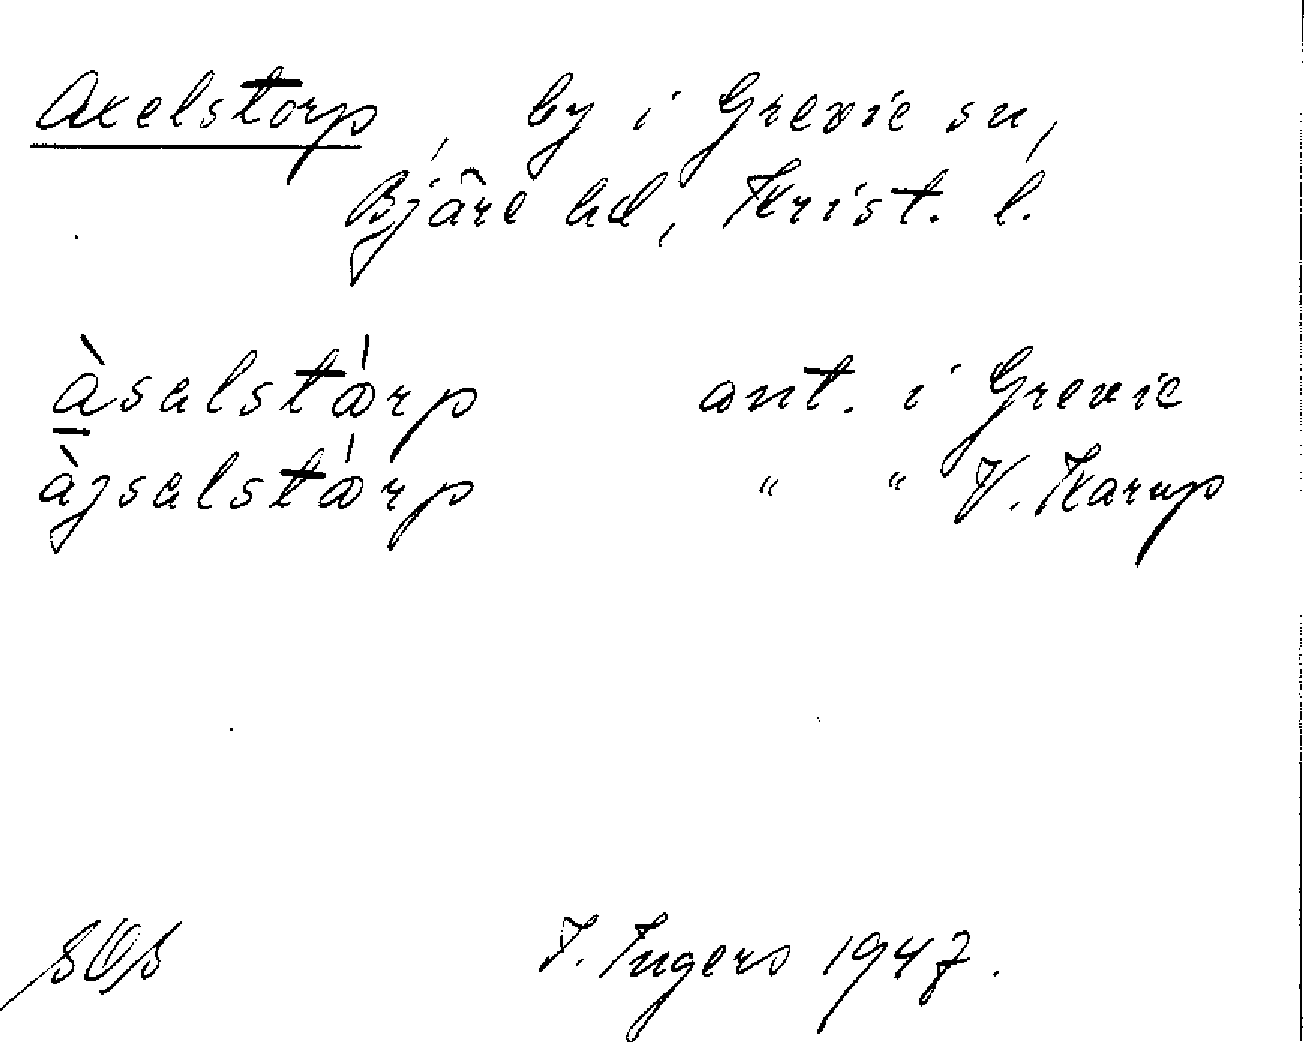 Axelstorp, by i Grevie sn,
Bjäre hd, Krist. l.
àsalstårp ant. i Grevie
àjsalstårp " " V. Karup
I. Ingers 1947.